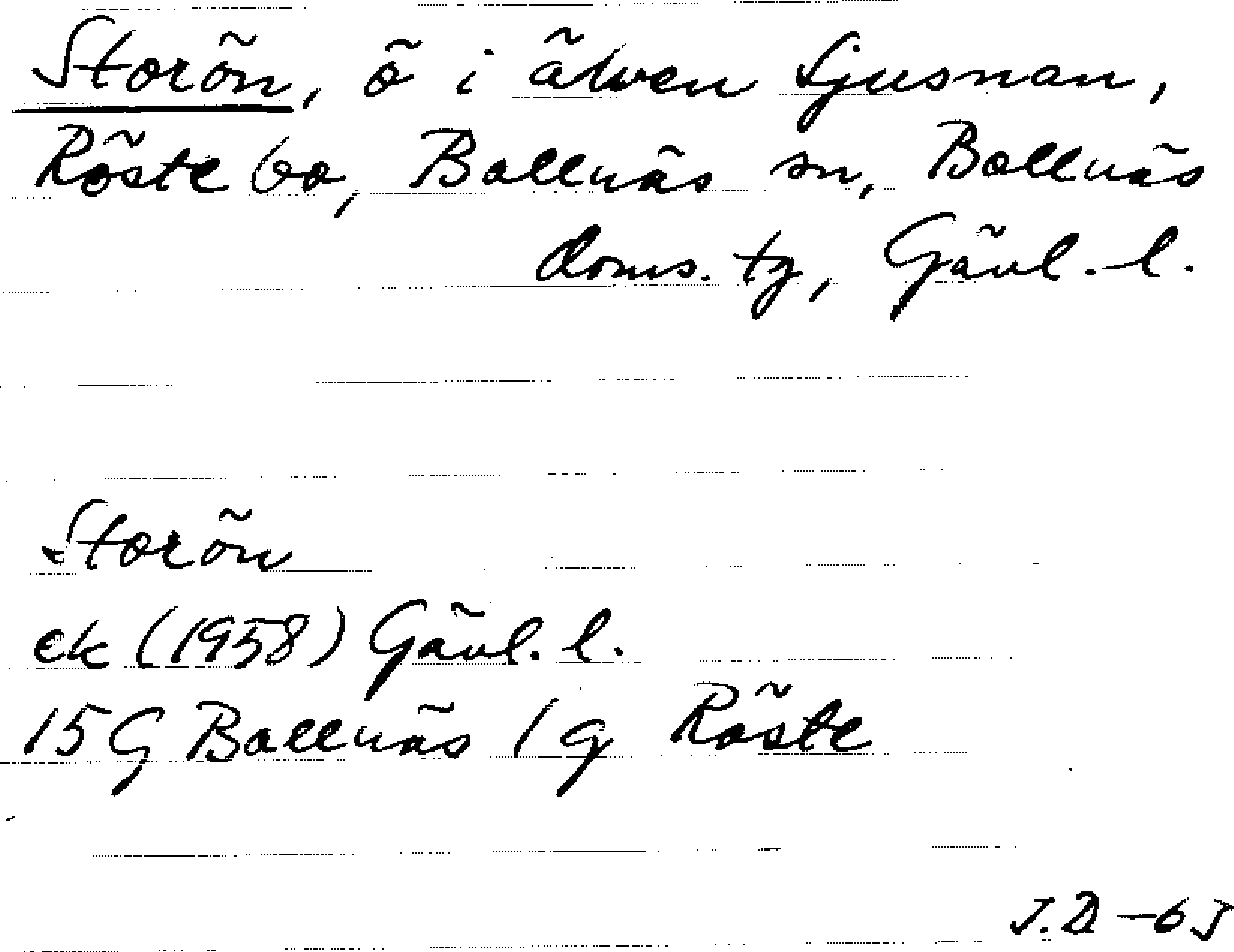 Storön, ö i älven Ljusnan,
Röstebo, Bollnäs sn, Bollnäs
doms. tg, Gävl. l.
Storön
ek (1958) Gävl. l.
15G Bollnäs 1g Röste
J.D -65